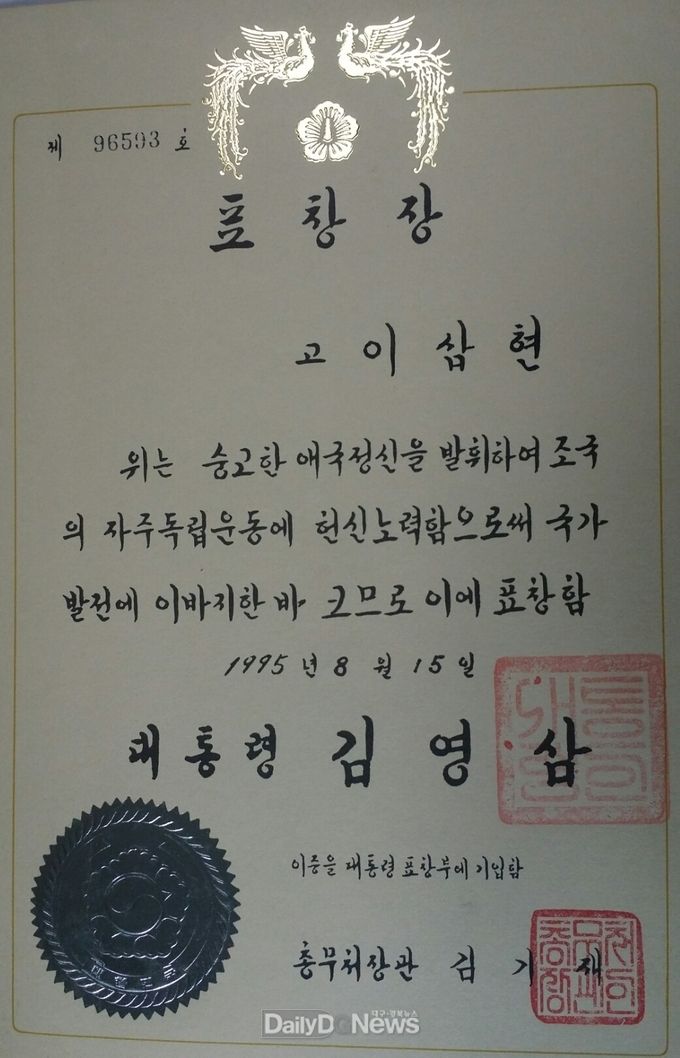 제 96593 호
표창장
고 이 삼 현
위는 숭고한 애국정신을 발휘하여 조국
의 자주독립운동에 헌신노력함으로써 국가
발전에 이바지한 바 크므로 이에 표창함
1995 년 8 월 15 일
대통령 김 영 삼
이증을 대통령 표창부에 기입함
총무처장관 김 기 재
대구·경북뉴스
DailyDgNews